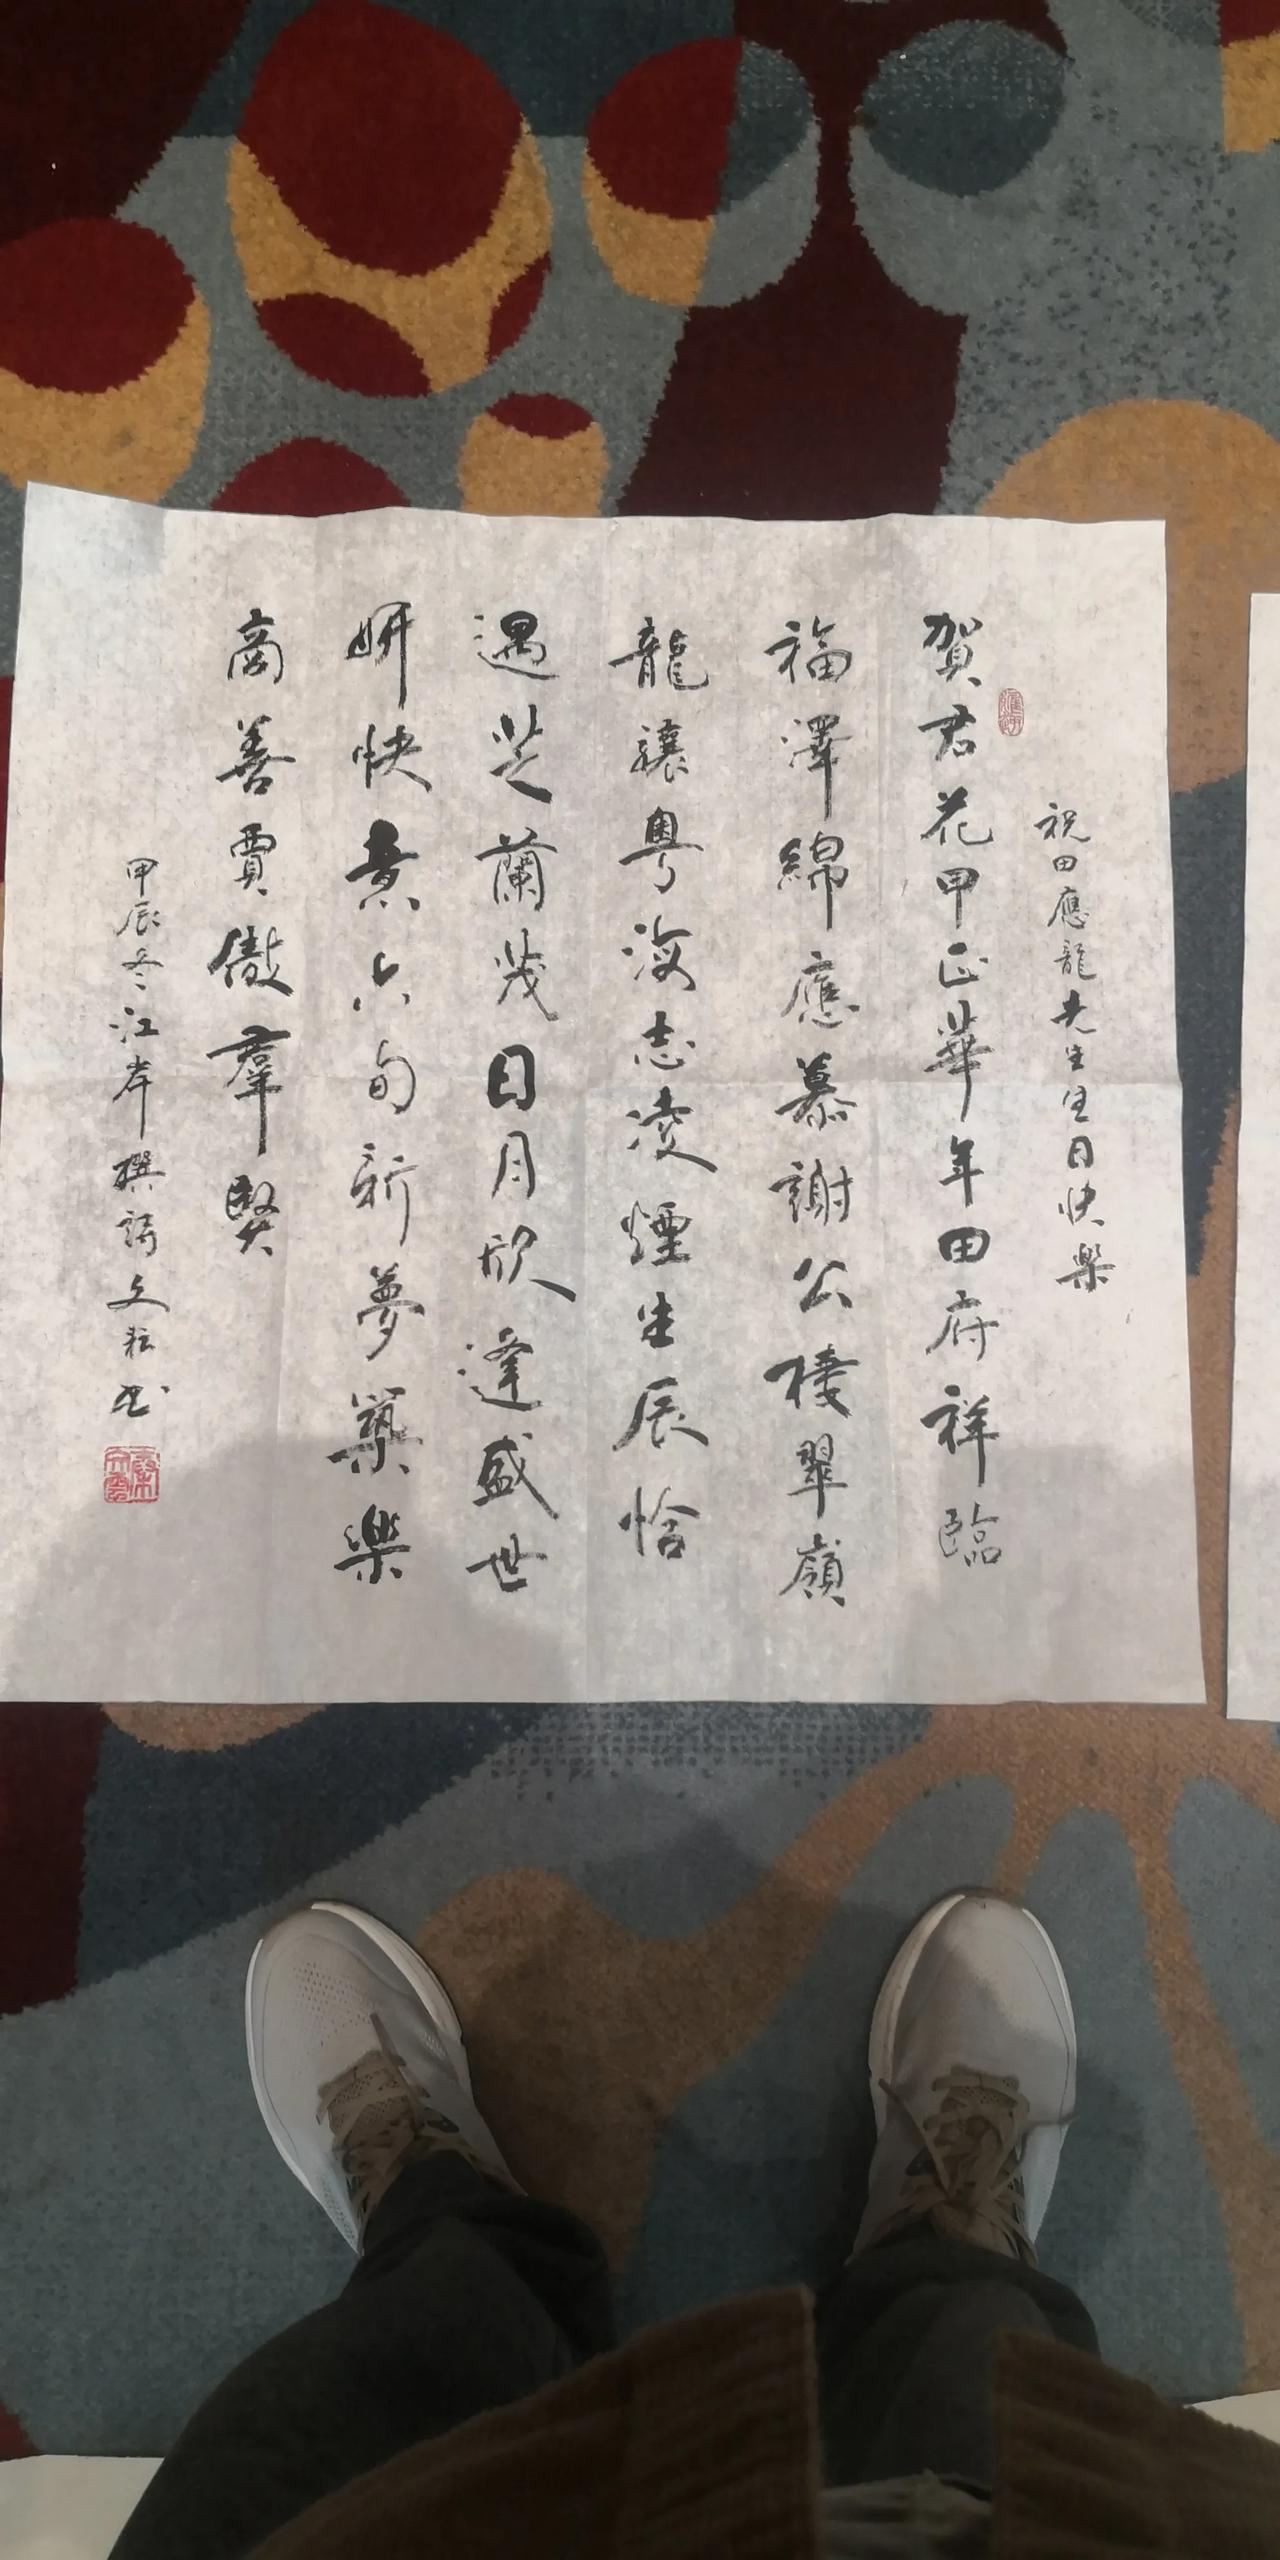 祝田應龍先生生日快樂
賀君花甲正華年田府祥臨
福澤綿應慕謝公棲翠嶺
龍驤粵海志凌煙生辰恰
遇芝蘭茂日月欣逢盛世
妍快意六旬新夢築樂
商善賈傲羣賢
甲辰冬江岸撰詩文耘书